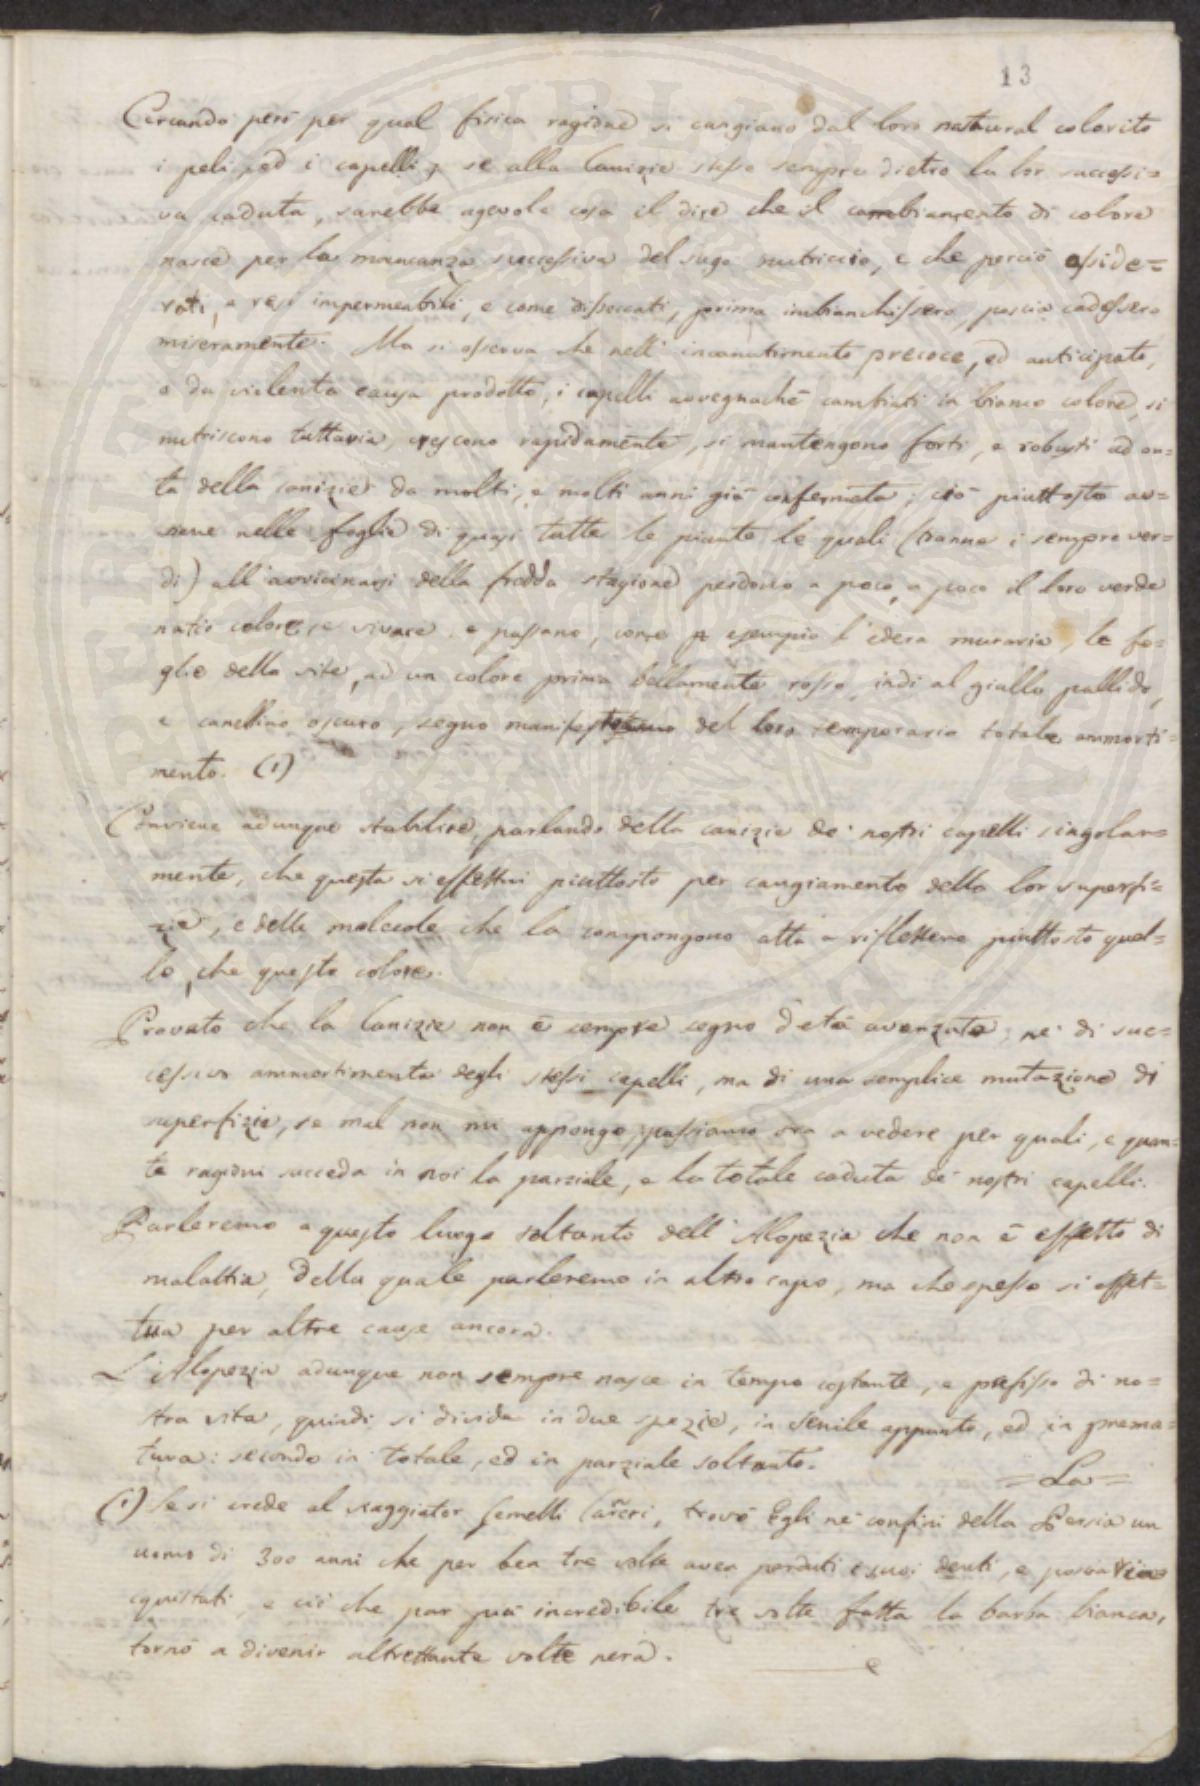 13
Cercando però per qual fisica ragione si cangiano dal loro natural colorito
i peli, ed i capelli; se alla Canizie stasse sempre dietro la lor successi=
va caduta, sarebbe agevole cosa il dire che il cambiamento di colore
nasce per la mancanza successiva del sugo nutriccio, e che perciò asside=
rati, e resi impermeabili, e come dissoccati, prima imbianchissero, poscia cadessero
miseramente. Ma si osserva che nell' incanutimento precoce, ed anticipato,
o da violenta causa prodotto, i capelli avvegnachè cambiati in bianco colore, si
nutriscono tuttavia, crescono rapidamente, si mantengono forti, e robusti ad on=
ta della canizie da molti, e molti anni già confermata; ciò piuttosto av=
viene nelle foglie di quasi tutte le piante le quali (tranne i sempre ver=
di) all'avvicinarsi della fredda stagione perdono a poco, a poco il loro verde
natio colore, e vivace, e passano, come p esempio l'edera muraria, le fo=
glie della vite, ad un colore prima bellamente rosso, indi al giallo pallido,
e canellino oscuro, segno del loro temporario totale ammorti=
mento. (1)
Conviene adunque stabilire, parlando della canizie de' nostri capelli singolar=
mente, che questa si effettui piuttosto per cangiamento della lor superfi=
zie, e delle molecole che la compongono atta a riflettere piuttosto quel=
lo, che questo colore.
Provato che la Canizie non è sempre segno d'età avanzata; nè di suc=
cessivo ammortimento degli stessi capelli, ma di una semplice mutazione di
superfizie, se mal non mi appongo, passiamo ora a vedere per quali, e quan=
te ragioni succeda in noi la parziale, e la totale caduta de' nostri capelli.
Parleremo a questo luogo soltanto dell' Alopezia che non è effetto di
malattia, della quale parleremo in altro capo, ma che spesso si effet=
tua per altre cause ancora.
L'Alopezia adunque non sempre nasce in tempo costante, e prefisso di no=
stra vita, quindi si divide in due spezie, in senile appunto, ed in prema=
tura: secondo in totale, ed in parziale soltanto.
= La =
(1) Se si crede al viaggiator Gemelli Carreri, trovò Egli ne' confini della Persia un
uomo di 300 anni che per ben tre volte avea perduti i suoi denti, e poscia ria=
cquistati, e ciò che par più incredibile tre volte fatta la barba bianca,
tornò a divenir altrettante volte nera.